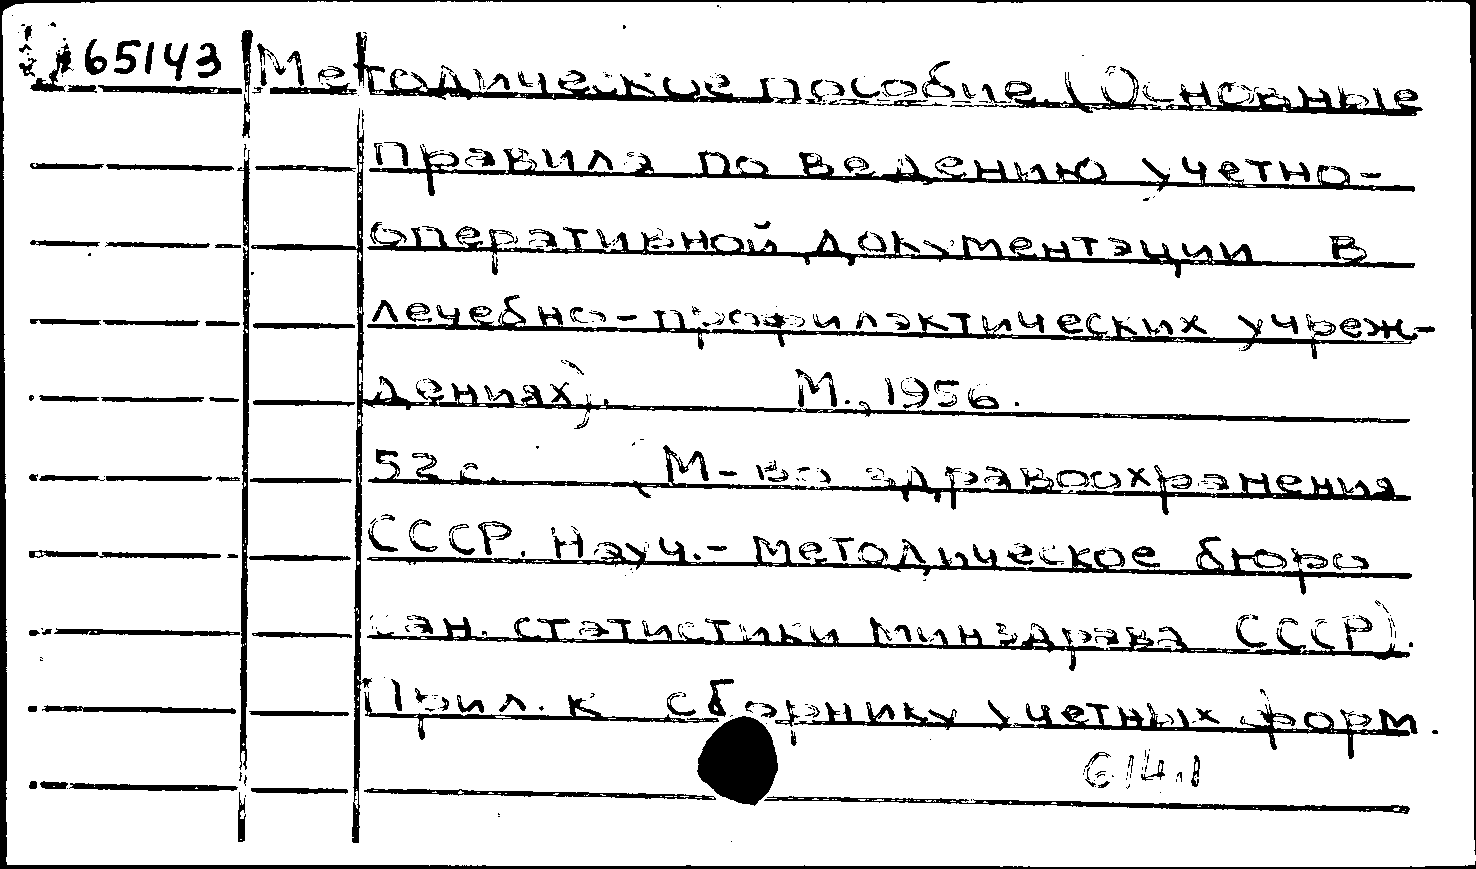 65143 Методическое пособие (Основные
правила по ведению учетно-
оперативной документации в
лечебно-профилактических учреж-
дениях). М., 1956.
52 с. (М-во здравоохранения
СССР. Науч.-методическое бюро
сан. статистики Минздрава СССР).
Прил. к сборнику учетных форм.
614.1